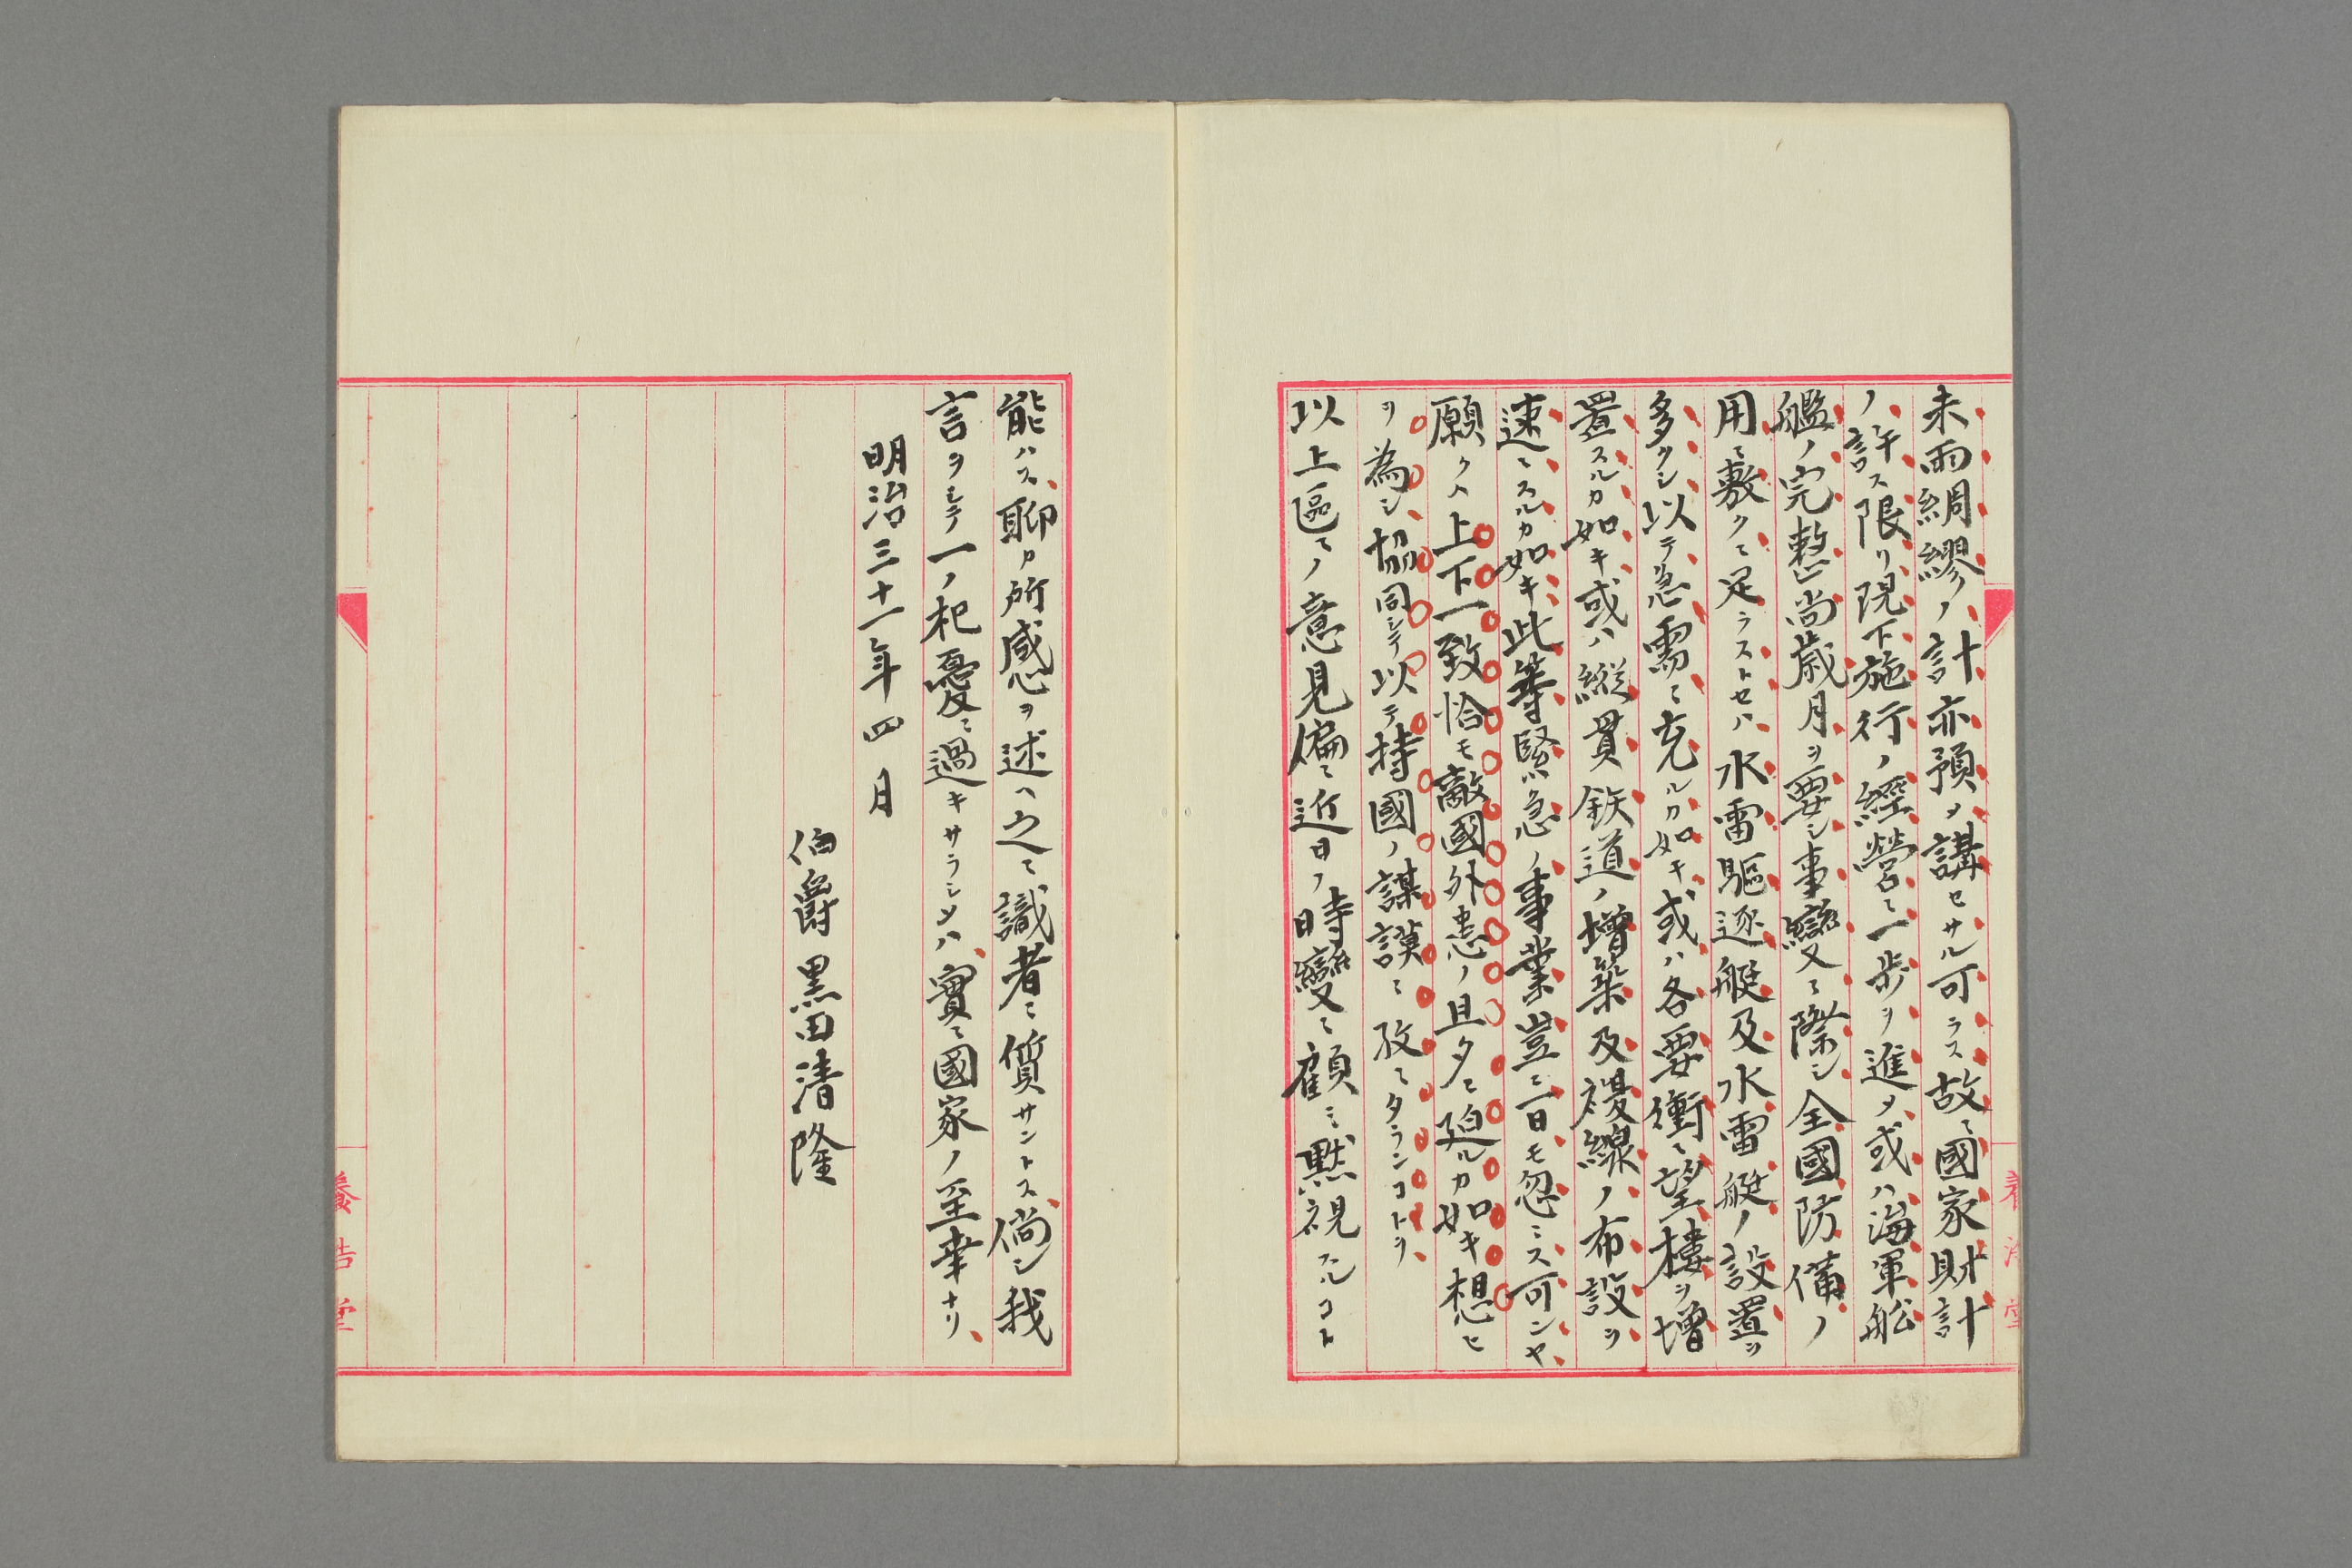 未雨綢繆ノ計亦預メ講セサル可ラス故ニ國家財計
ノ許ス限リ現下施行ノ經營ニ一歩ヲ進メ或ハ海軍舩
艦ノ完整尚歳月ヲ要シ事變ニ際シ全國防備ノ
用ニ敷クニ足ラストセハ水雷駆逐艇及水雷艇ノ設置ヲ
多クシ以テ急需ニ充ルカ如キ或ハ各要衝ニ望樓ヲ増
置スルカ如キ或ハ縦貫鉄道ノ増築及複線ノ布設ヲ
速ニスルカ如キ此等緊急ノ事業豈ニ一日モ忽ニス可ンヤ
願クハ上下一致恰モ敵國外患ノ且夕ニ廹ルカ如キ想ヒ
ヲ為シ協同シテ以テ持國ノ謀謨ニ孜々タランコトヲ
以上區々ノ意見偏ニ近日ノ時變ニ顧ミ黙視スルコト
能ハス聊カ所感ヲ述ヘ之ヲ識者ニ質サントス倘シ我
言ヲシテ一ノ杞憂ニ過キサラシメハ實ニ國家ノ至幸ナリ
明治三十一年四月
伯爵黒田清隆
養浩堂